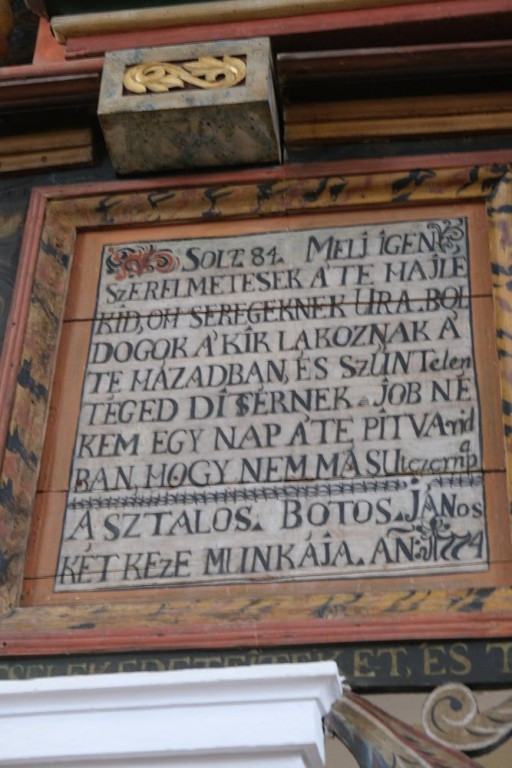 SOLT. 84. MELJ IGEN
SZERELMETESEK A' TE HAJLÉ
KID, OH SEREGEKNEK URA. BOL
DOGOK A' KIK LAKOZNAK A'
TE HÁZADBAN, ÉS SZÜNTelen
TÉGED DITSÉRNEK. JOB NÉ
KEM EGY NAP A' TE PITVArid
BAN, HOGY NEM MÁSUtt
A' SZTALOS. BOTOS. JÁNos
KÉT KEZE MUNKÁJA. AN: 1774
ÉS